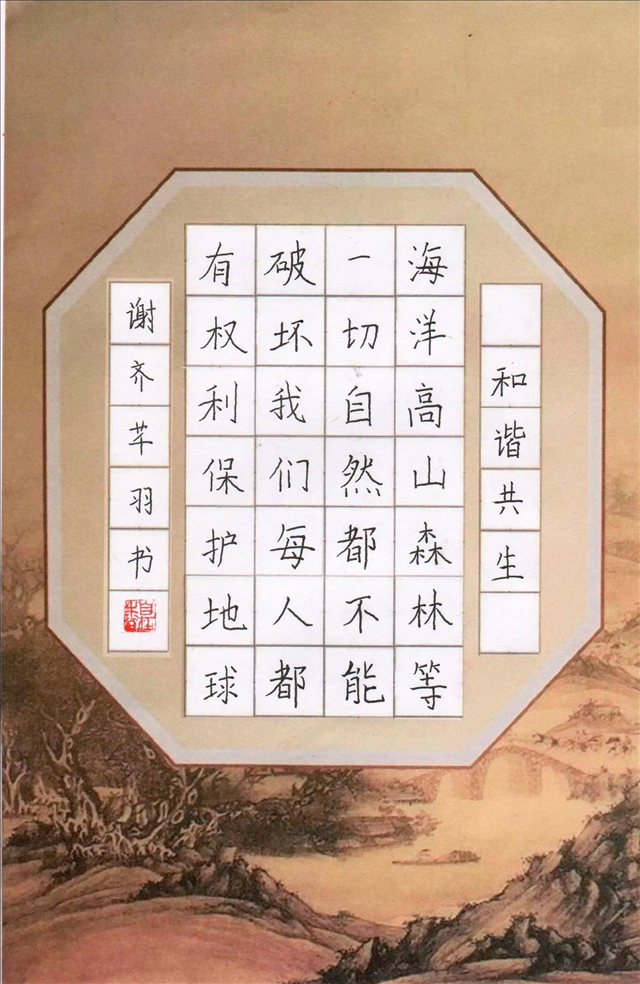 和谐共生
海洋高山森林等
一切自然都不能
破坏我们每人都
有权利保护地球
谢齐芊羽书